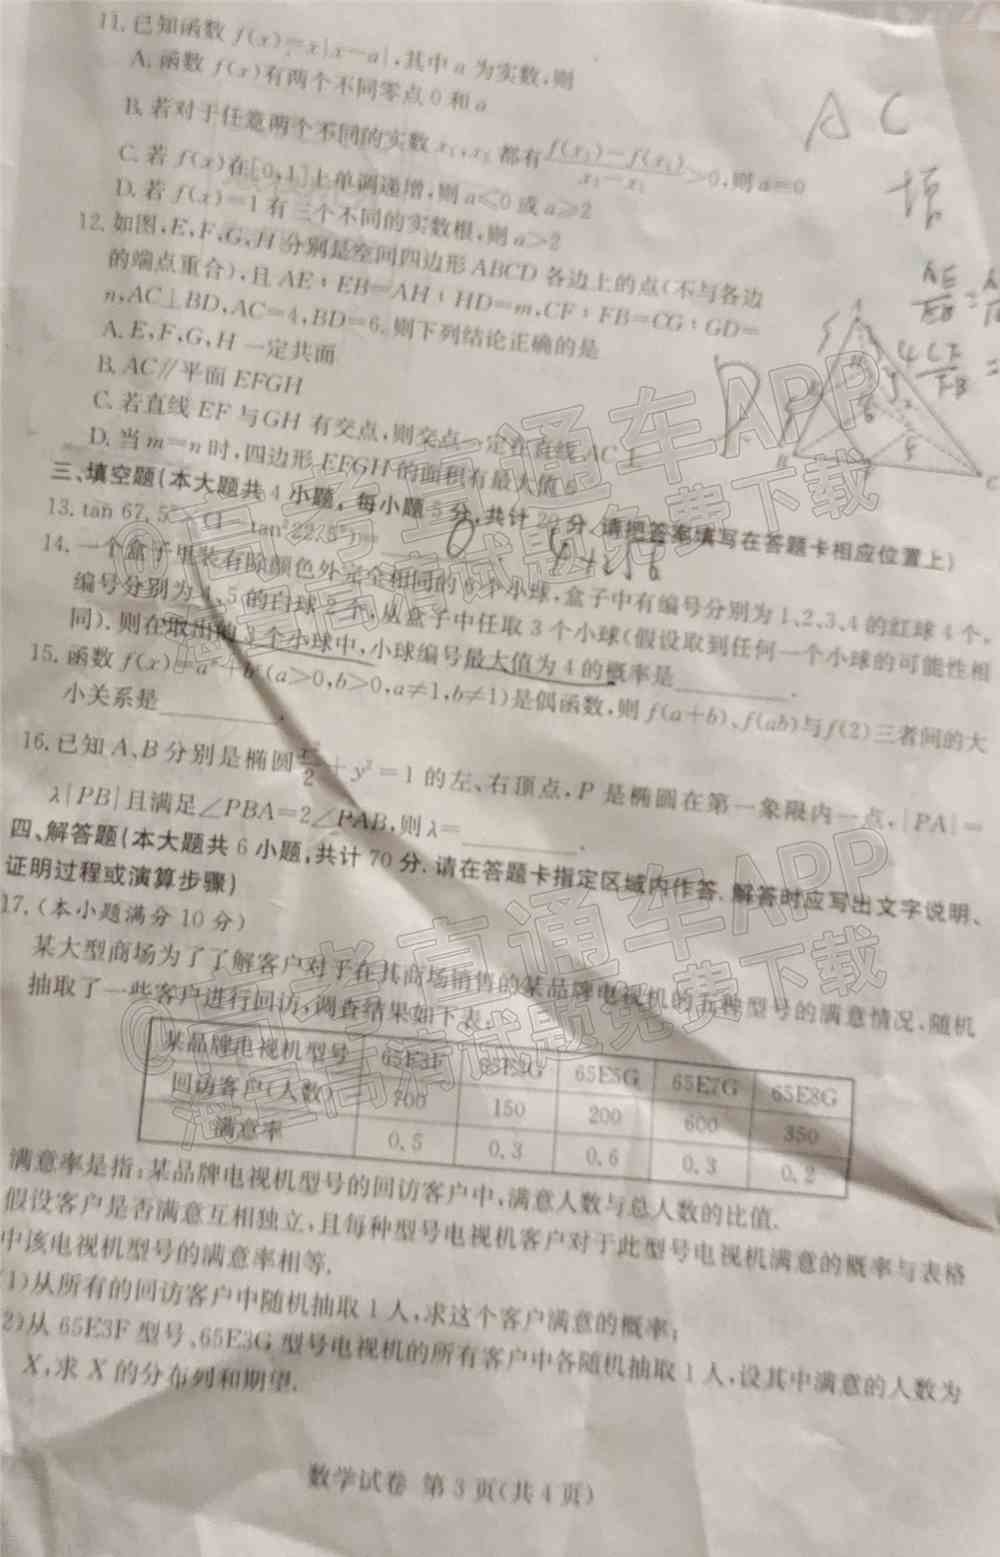 11.已知函数 f(x)=x|x-a|,其中 a 为实数,则
A.函数 f(x)有两个不同零点 0 和 a
B.若对于任意两个不同的实数 x₁,x₂ 都有 f(x₂)-f(x₁)/x₂-x₁>0,则 a=0
C.若 f(x)在[0,1]上单调递增,则 a≤0 或 a≥2
D.若 f(x)=1 有三个不同的实数根,则 a>2
12.如图,E,F,G,H 分别是空间四边形 ABCD 各边上的点(不与各边
的端点重合),且 AE:EB=AH:HD=m,CF:FB=CG:GD=
n,AC⊥BD,AC=4,BD=6.则下列结论正确的是
A.E,F,G,H 一定共面
B.AC∥平面 EFGH
C.若直线 EF 与 GH 有交点,则交点一定在直线 AC 上
D.当 m=n 时,四边形 EFGH 的面积有最大值 6
三、填空题(本大题共 4 小题,每小题 5 分,共计 20 分.请把答案填写在答题卡相应位置上)
13.tan 67.5° tan²22.5°)=
14.一个盒子里装有除颜色外完全相同的 6 个小球,盒子中有编号分别为 1,2,3,4 的红球 4 个,
编号分别为 4,5 的白球 2 个,从盒子中任取 3 个小球(假设取到任何一个小球的可能性相
同).则在取出的 3 个小球中,小球编号最大值为 4 的概率是________.
15.函数 f(x)=aˣ+bˣ(a>0,b>0,a≠1,b≠1)是偶函数,则 f(a+b)、f(ab)与 f(2)三者间的大
小关系是________.
16.已知 A、B 分别是椭圆 x²/2+y²=1 的左、右顶点,P 是椭圆在第一象限内一点,|PA|=
λ|PB|且满足∠PBA=2∠PAB,则 λ=________.
四、解答题(本大题共 6 小题,共计 70 分.请在答题卡指定区域内作答.解答时应写出文字说明、
证明过程或演算步骤)
17.(本小题满分 10 分)
某大型商场为了了解客户对于在其商场销售的某品牌电视机的五种型号的满意情况,随机
抽取了一些客户进行回访,调查结果如下表:
某品牌电视机型号 65E3F 65E3G 65E5G 65E7G 65E8G
回访客户(人数) 700 150 200 600 350
满意率 0.5 0.3 0.6 0.3 0.2
满意率是指:某品牌电视机型号的回访客户中,满意人数与总人数的比值.
假设客户是否满意互相独立,且每种型号电视机客户对于此型号电视机满意的概率与表格
中该电视机型号的满意率相等.
1)从所有的回访客户中随机抽取 1 人,求这个客户满意的概率;
2)从 65E3F 型号、65E3G 型号电视机的所有客户中各随机抽取 1 人,设其中满意的人数为
X,求 X 的分布列和期望.
数学试卷 第 3 页(共 4 页)
A C